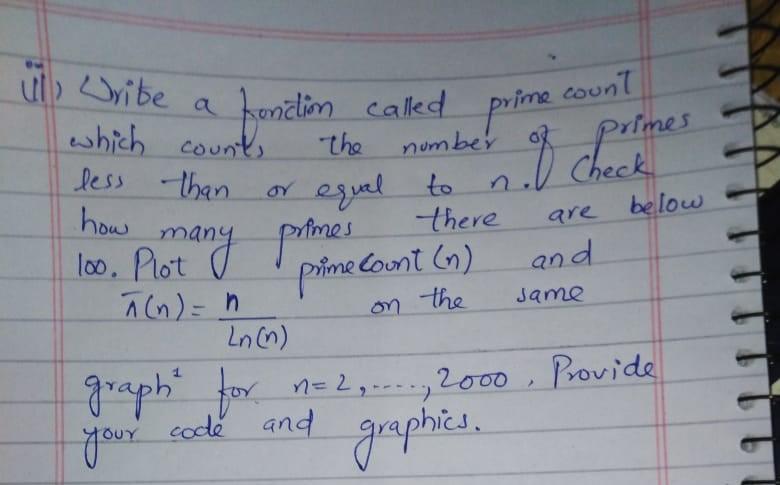 iii) Write a fonction called prime count
which counts the number of primes
less than or equal to n. Check
how many primes there are below
100. Plot primecount (n) and
π(n) = n / Ln(n) on the same
graph¹ for n=2,-----,2000. Provide
your code and graphics.